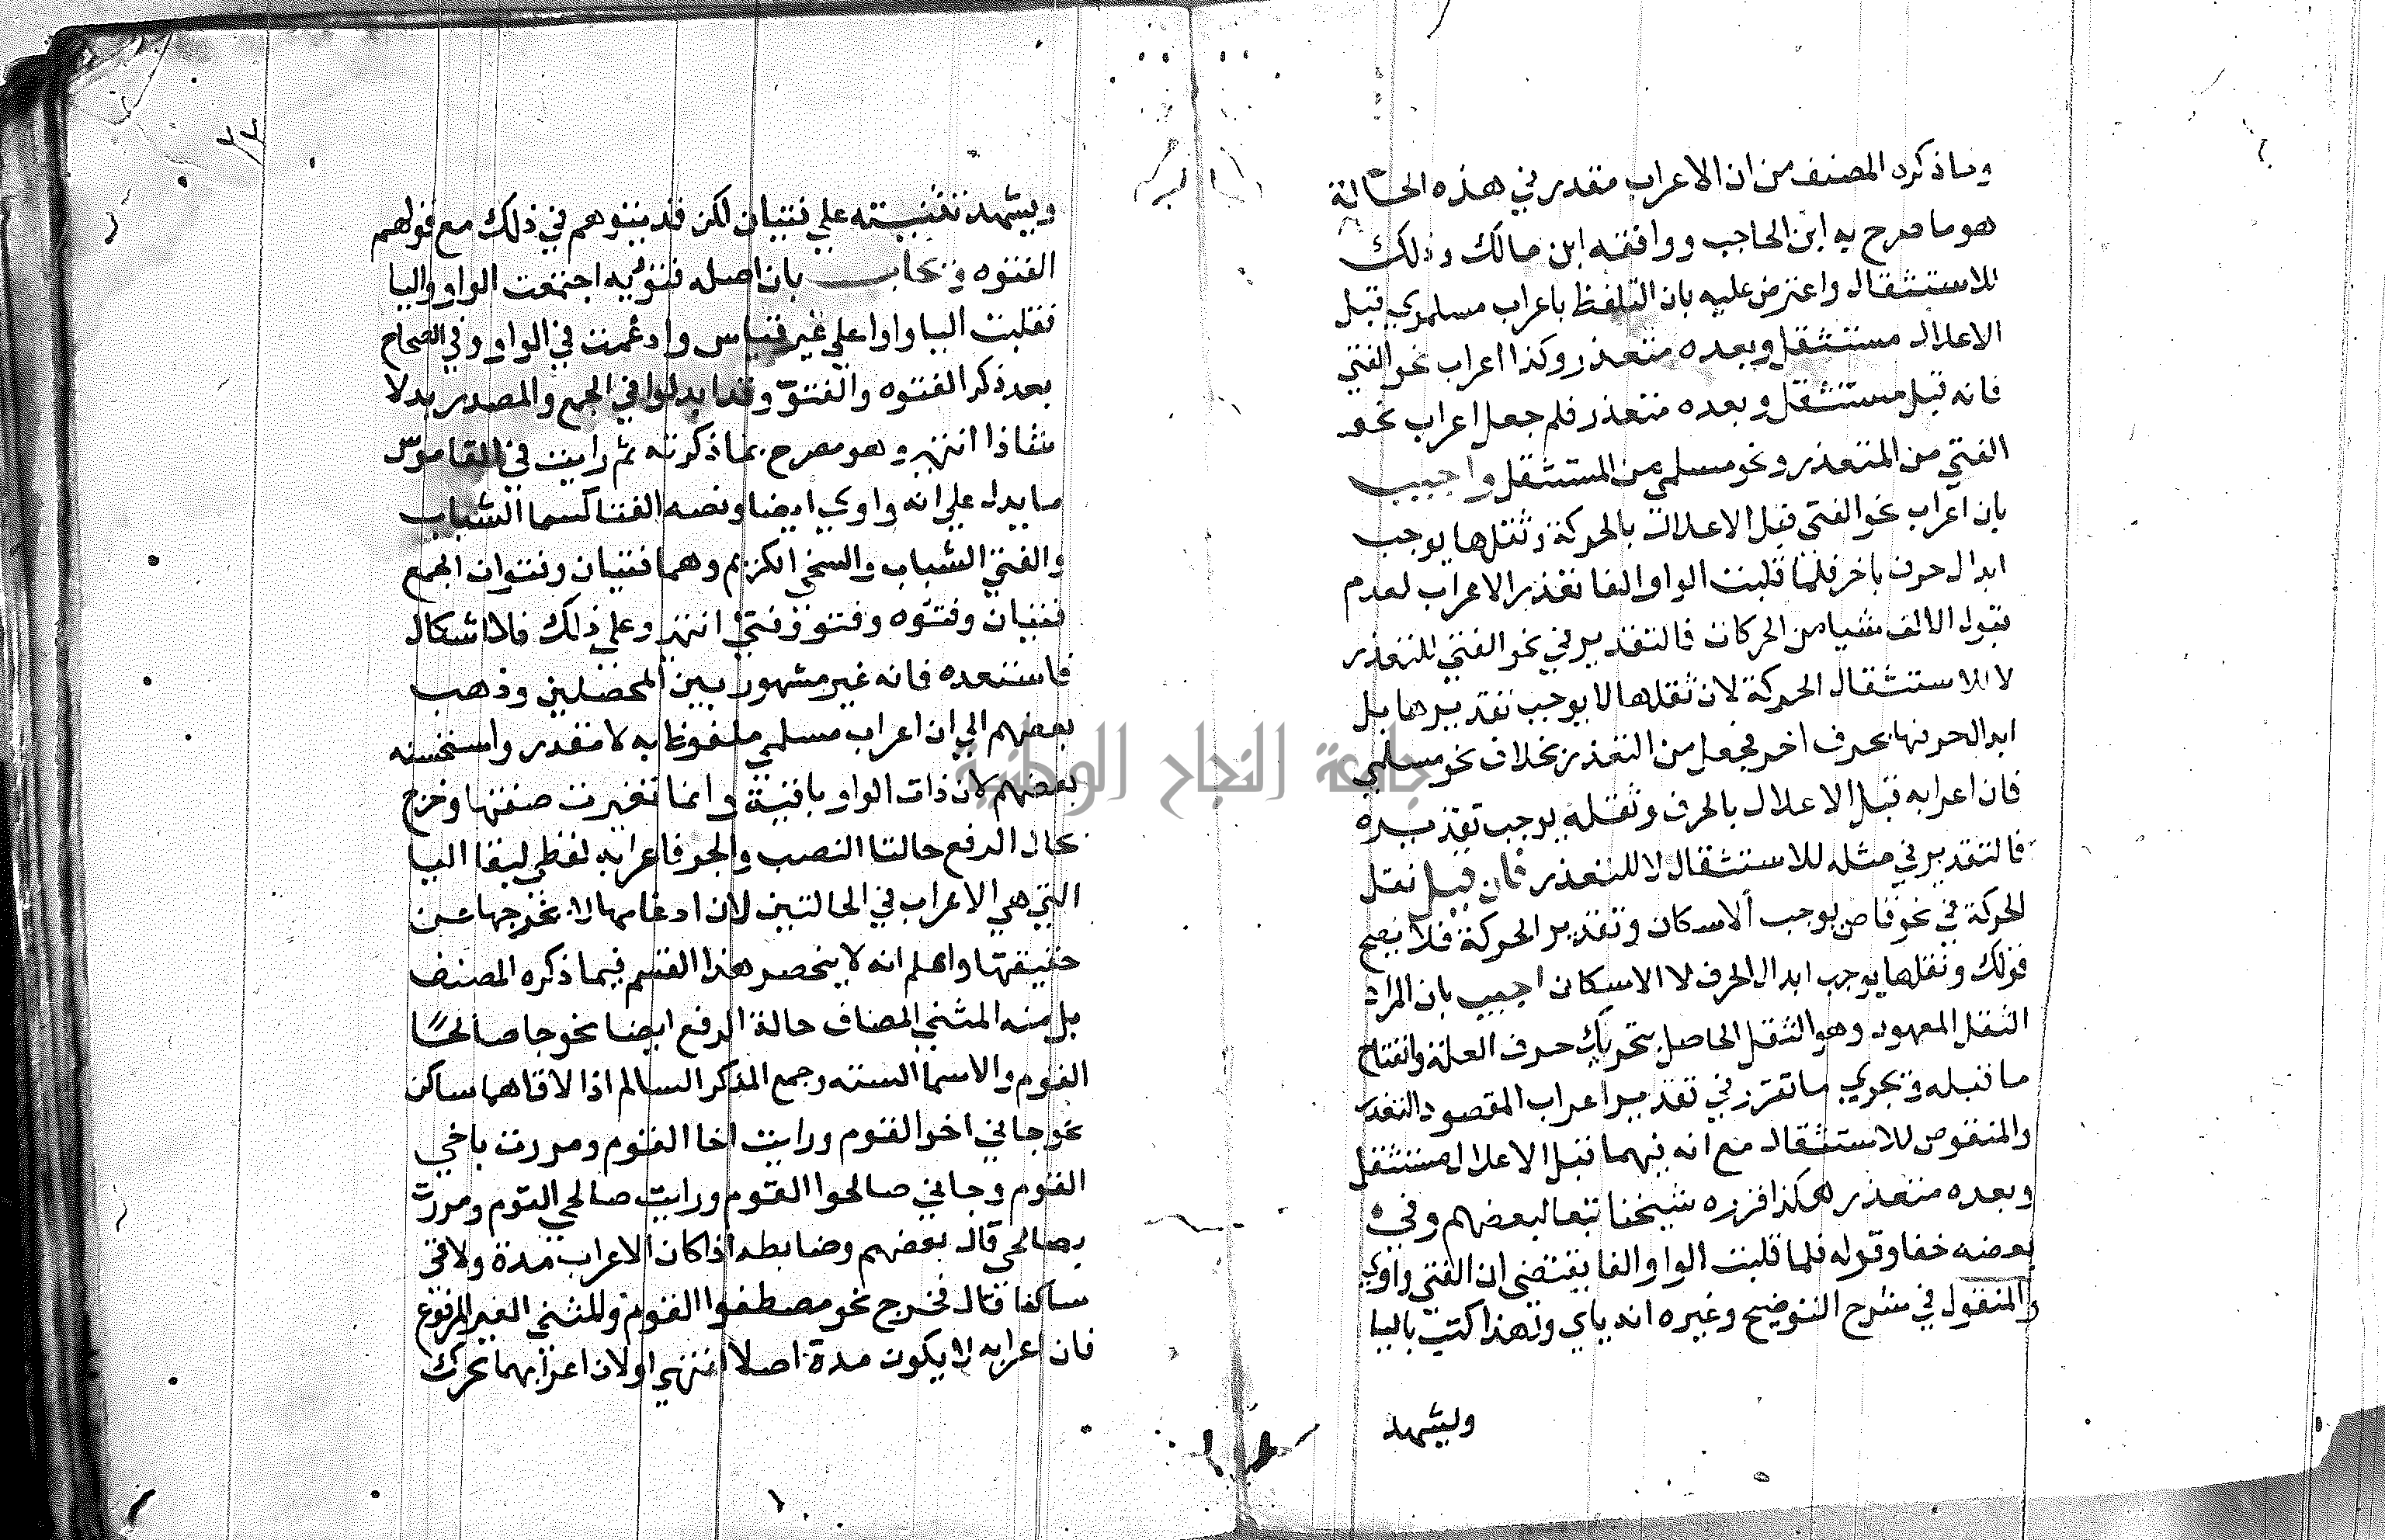 وما ذكره المصنف من ان الاعراب مقدر في هذه الحالة
هو ما صرح به ابن الحاجب ووافقه ابن مالك وذلك
للاستثقال واعترض عليه بان التلفظ باعراب مسلموي قبل
الاعلال مستثقل وبعده متعذر وكذا اعراب نحو الفتي
فانه قبل مستثقل وبعده متعذر فلم جعل اعراب نحو
الفتي من المتعذر ونحو مسلمي من المستثقل واجيب
بان اعراب نحو الفتي قبل الاعلال بالحركة وثقلها يوجب
ابدال حرف باخر فلما قلبت الواو الفا تعذر الاعراب لعدم
قبول الالف شيا من الحركات فالتقدير في نحو الفتي للتعذر
لا للاستثقال الحركة لان ثقلها لا يوجب تقديرها بل
ابدال حرفها بحرف اخر فجعل من التعذر بخلاف نحو مسلمي
فان اعرابه قبل الاعلال بالحرف وثقله يوجب تقديره
فالتقدير في مثله للاستثقال لا للتعذر فان قيل ثقل
الحركة في نحو قاض يوجب الاسكان وتقدير الحركة فلا يصح
قولك وثقلها يوجب ابدال الحرف لا الاسكان اجيب بان المراد
الثقل المعهود وهو الثقل الحاصل بتحريك حرف العلة وانفتاح
ما قبله ويجري ما تقرر في تقدير اعراب المقصور للتعذر
والمنقوص للاستثقال مع انه فيهما قبل الاعلال مستثقل
وبعده متعذر هكذا قرره شيخنا تبعا لبعضهم وفي
بعضه خفا وقوله فلما قلبت الواو الفا يقتضي ان الفتي واوي
والمنقول في شرح التوضيح وغيره انه ياي ولهذا كتب باليا
ويشهد
٢٢
ويشهد تثنيته علي فتيان لكن قد ينوهم في ذلك مع قولهم
الفتوه ويجاب بان اصله فتويه اجتمعت الواو واليا
فقلبت اليا واوا علي غير قياس وادغمت في الواو وفي الصحاح
بعد ذكر الفتوه والفتو وقد ابدلوا في الجمع والمصدر بدلا
شاذا انتهي وهو مصرح بما ذكرته ثم رايت في القاموس
ما يدل علي انه واوي ايضا ونصه الفتا كسما الشباب
والفتي الشباب والسخي الكريم وهما فتيان وفتوان الجمع
فتيان وفتوه وفتو وفتي انتهي وعلي ذلك فلا اشكال
فاستفده فانه غير مشهور بين المحصلين وذهب
بعضهم الي ان اعراب مسلمي ملفوظ به لا مقدر واستحسنه
بعضهم لان ذات الواو باقية وانما تغيرت صفتها وخرج
بحال الرفع حالتا النصب والجر فاعرابه لفظي لبقا اليا
التي هي الاعراب في الحالتين لان ادغامها لا يخرجها عن
حقيقتها واعلم انه لا ينحصر هذا القسم فيما ذكره المصنف
بل منه المثني المضاف حالة الرفع ايضا نحو جا صالحا
القوم والاسما الستة وجمع المذكر السالم اذا لاقاهما ساكن
نحو جاني اخو القوم ورايت اخا القوم ومررت باخي
القوم وجاني صالحوا القوم ورايت صالحي القوم ومررت
بصالحي قال بعضهم وضابطه اذا كان الاعراب مدة ولاقي
ساكنا قال فخرج نحو مصطفوا القوم والمثني الغير المرفوع
فان اعرابه لا يكون مدة اصلا انتهي اولان اعرابهما تحرك
جامعة النجاح الوطنية